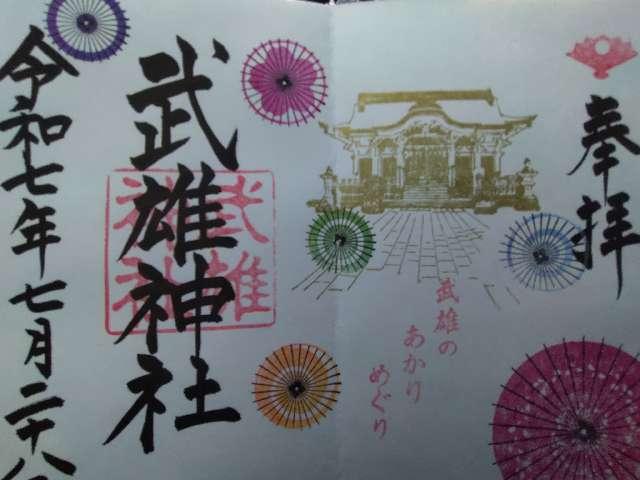 奉拝
武雄の
あかり
めぐり
武雄神社
武雄
神社
令和七年七月二十八